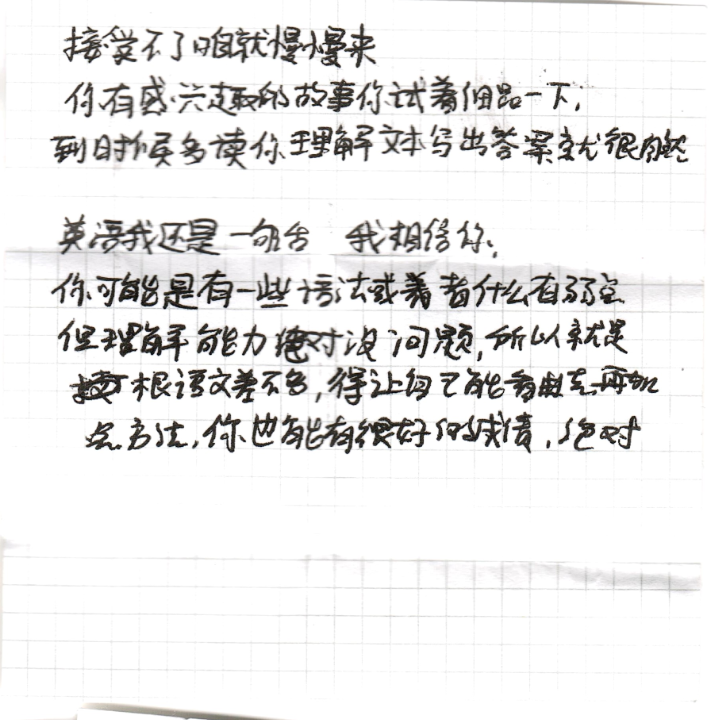 接受不了咱就慢慢来
你有感兴趣的故事你试着细品一下,
到时候多读你理解文本写出答案就很自然
英语我还是一句话 我相信你,
你可能是有一些语法或着者什么有弱点
但理解能力绝对没问题,所以就是
根语文差不多,得让自己能看进去再加
点方法,你也能有很好的成绩,绝对